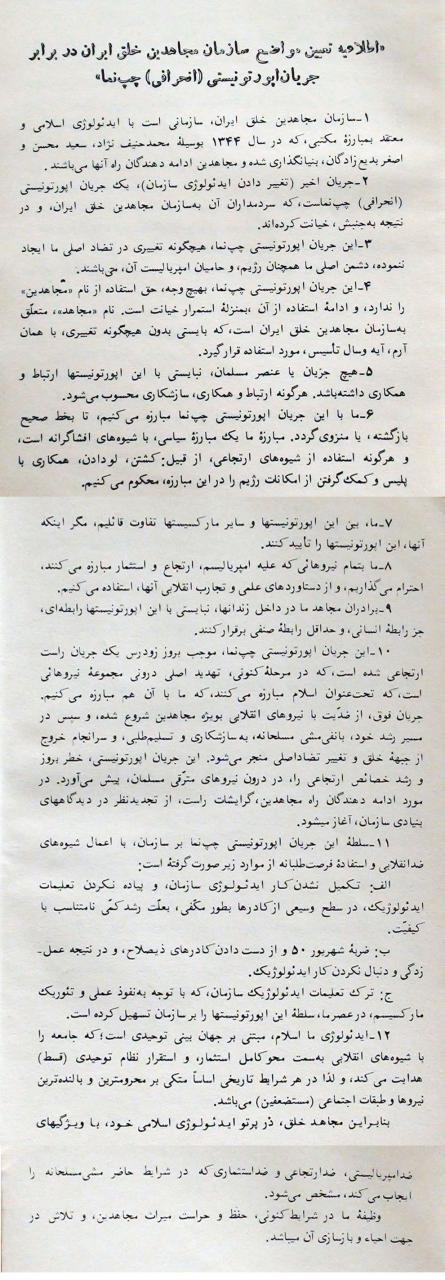 «اطلاعیه تعیین مواضع سازمان مجاهدین خلق ایران در برابر
جریان اپورتونیستی (انحرافی) چپ‌نما»
۱ـ سازمان مجاهدین خلق ایران، سازمانی است با ایدئولوژی اسلامی و
معتقد بمبارزهٔ مکتبی، که در سال ۱۳۴۴ بوسیلهٔ محمدحنیف نژاد، سعید محسن و
اصغر بدیع‌زادگان، بنیانگذاری شده و مجاهدین ادامه دهندگان راه آنها می‌باشند.
۲ـ جریان اخیر (تغییر دادن ایدئولوژی سازمان)، یک جریان اپورتونیستی
(انحرافی) چپ‌نماست، که سردمداران آن به‌سازمان مجاهدین خلق ایران، و در
نتیجه به‌جنبش، خیانت کرده‌اند.
۳ـ این جریان اپورتونیستی چپ‌نما، هیچگونه تغییری در تضاد اصلی ما ایجاد
ننموده، دشمن اصلی ما همچنان رژیم، و حامیان امپریالیست آن، می‌باشند.
۴ـ این جریان اپورتونیستی چپ‌نما، بهیچ‌وجه، حق استفاده از نام «مجاهدین»
را ندارد، و ادامهٔ استفاده از آن، بمنزلهٔ استمرار خیانت است. نام «مجاهد»، متعلق
به‌سازمان مجاهدین خلق ایران است، که بایستی بدون هیچگونه تغییری، با همان
آرم، آیه وسال تأسیس، مورد استفاده قرار گیرد.
۵ـ هیچ جریان یا عنصر مسلمان، نبایستی با این اپورتونیستها ارتباط و
همکاری داشته‌باشد. هرگونه ارتباط و همکاری، سازشکاری محسوب می‌شود.
۶ـ ما با این جریان اپورتونیستی چپ‌نما مبارزه می‌کنیم، تا بخط صحیح
بازگشته، یا منزوی گردد. مبارزهٔ ما یک مبارزهٔ سیاسی، با شیوه‌های افشاگرانه است،
و هرگونه استفاده از شیوه‌های ارتجاعی، از قبیل: کشتن، لودادن، همکاری با
پلیس و کمک گرفتن از امکانات رژیم را در این مبارزه، محکوم می‌کنیم.
۷ـ ما، بین این اپورتونیستها و سایر مارکسیستها تفاوت قائلیم، مگر اینکه
آنها، این اپورتونیستها را تأیید کنند.
۸ـ ما بتمام نیروهائی که علیه امپریالیسم، ارتجاع و استثمار مبارزه می‌کنند،
احترام می‌گذاریم، و از دستاوردهای علمی و تجارب انقلابی آنها، استفاده می‌کنیم.
۹ـ برادران مجاهد ما در داخل زندانها، نبایستی با این اپورتونیستها رابطه‌ای،
جز رابطهٔ انسانی، و حداقل رابطهٔ صنفی برقرار کنند.
۱۰ـ این جریان اپورتونیستی چپ‌نما، موجب بروز زودرس یک جریان راست
ارتجاعی شده است، که در مرحلهٔ کنونی، تهدید اصلی درونی مجموعهٔ نیروهائی
است، که تحت‌عنوان اسلام مبارزه می‌کنند، که ما با آن هم مبارزه می‌کنیم.
جریان فوق، از ضدیت با نیروهای انقلابی بویژه مجاهدین شروع شده، و سپس در
مسیر رشد خود، با نفی‌مشی مسلحانه، به‌سازشکاری و تسلیم‌طلبی، و سرانجام خروج
از جبهه خلق و تغییر تضاداصلی منجر می‌شود. این جریان اپورتونیستی، خطر بروز
و رشد خصائص ارتجاعی را، در درون نیروهای مترقی مسلمان، پیش می‌آورد. در
مورد ادامه دهندگان راه مجاهدین، گرایشات راست، از تجدیدنظر در دیدگاههای
بنیادی سازمان، آغاز میشود.
۱۱ـ سلطهٔ این جریان اپورتونیستی چپ‌نما بر سازمان، با اعمال شیوه‌های
ضدانقلابی و استفادهٔ فرصت‌طلبانه از موارد زیر صورت‌گرفتهٔ است:
الف: تکمیل نشدن کار ایدئولوژی سازمان، و پیاده نکردن تعلیمات
ایدئولوژیک، در سطح وسیعی از کادرها بطور مکفی، بعلت رشدکمّی نامتناسب با
کیفیّت.
ب: ضربهٔ شهریور ۵۰ و از دست دادن کادرهای ذیصلاح، و در نتیجه عمل‌ـ
زدگی و دنبال نکردن کار ایدئولوژیک.
ج: ترک تعلیمات ایدئولوژیک سازمان، که با توجه به‌نفوذ عملی و تئوریک
مارکسیسم، در عصر ما، سلطهٔ این اپورتونیستها را بر سازمان تسهیل کرده است.
۱۲ـ ایدئولوژی ما اسلام، مبتنی بر جهان بینی توحیدی است؛ که جامعه را
با شیوه‌های انقلابی به‌سمت محو کامل استثمار، و استقرار نظام توحیدی (قسط)
هدایت می‌کند، و لذا در هر شرایط تاریخی اساساً متکی بر محرومترین و بالنده‌ترین
نیروها و طبقات اجتماعی (مستضعفین) می‌باشد.
بنابراین مجاهد خلق، در پرتو ایدئولوژی اسلامی خود، با ویژگیهای
ضدامپریالیستی، ضدارتجاعی و ضداستثماری که در شرایط حاضر مشی‌مسلحانه را
ایجاب می‌کند، مشخص می‌شود.
وظیفهٔ ما در شرایط کنونی، حفظ و حراست میراث مجاهدین، و تلاش در
جهت احیاء و بازسازی آن میباشد.